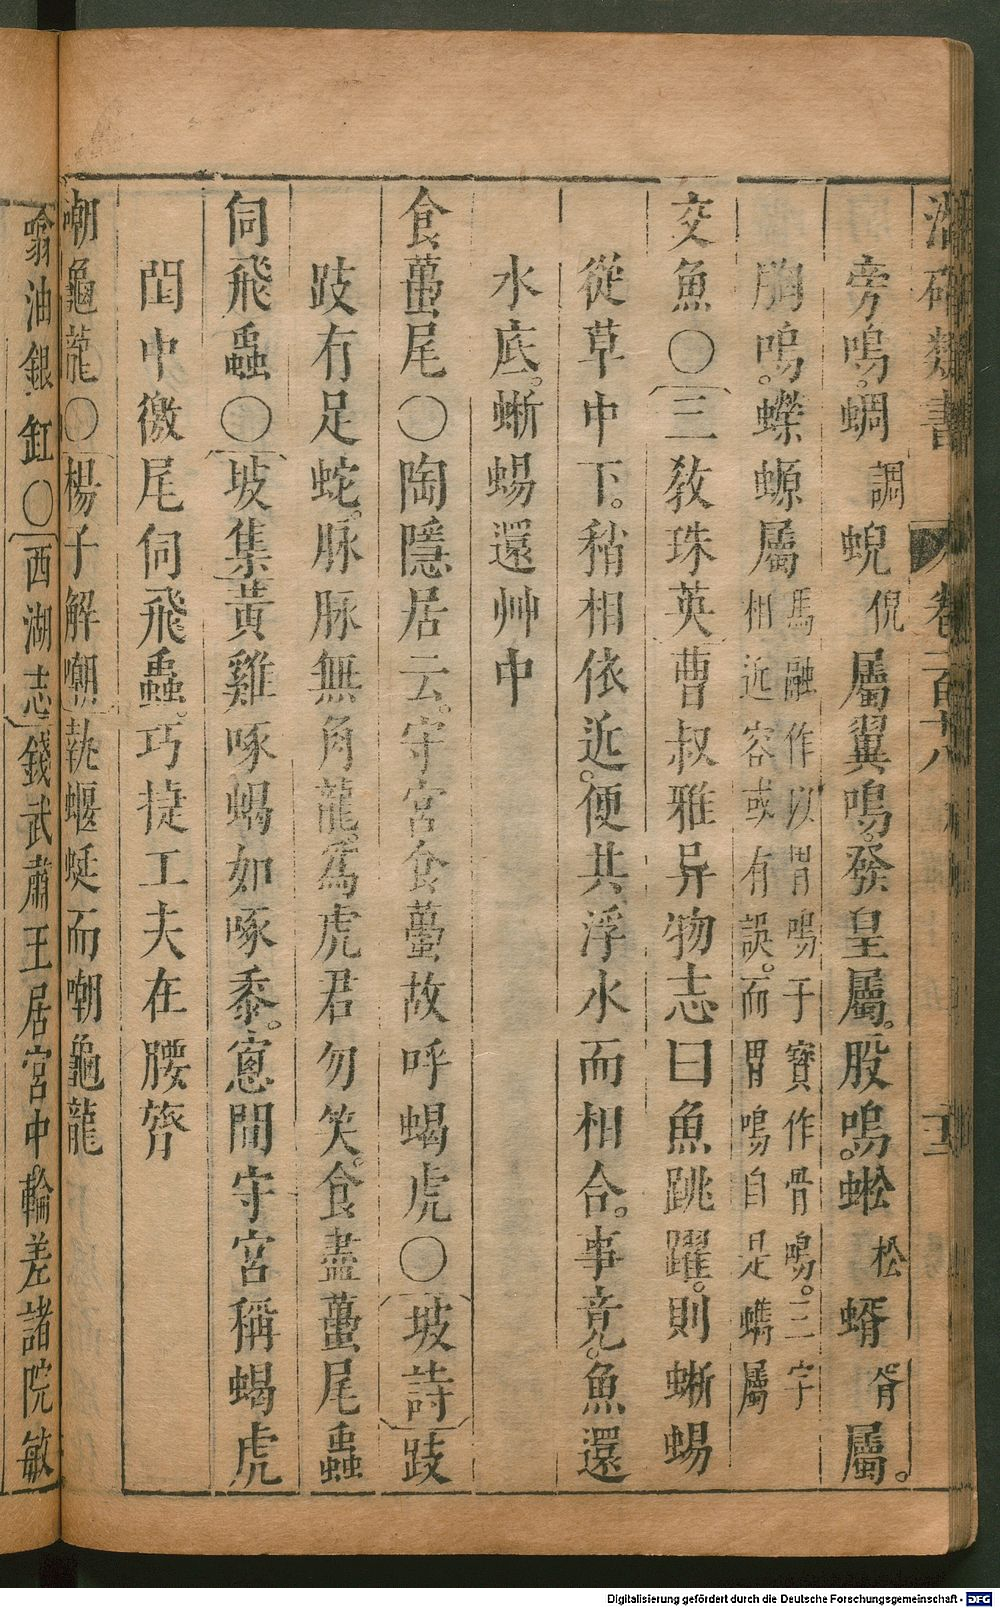 潛確類書 卷一百十八
旁鳴。蜩調蜺倪屬翼鳴。發皇屬。股鳴。蜙松蝑胥屬。
胸鳴。蠑螈屬馬融作以胃鳴于寶作骨鳴。二字相近容或有誤。而胃鳴自是蠵屬
交魚〇三敎珠英曹叔雅异物志曰魚跳躍。則蜥蜴
從草中下。稍相依近。便共浮水而相合。事竟。魚還
水底。蜥蜴還艸中
食蠆尾〇陶隱居云。守宮食蠆故呼蝎虎〇坡詩跂
跂有足蛇。脉脉無角龍。爲虎君勿笑。食盡蠆尾蟲
伺飛蟲〇坡集黃雞啄蝎如啄黍。窻間守宮稱蝎虎
闇中徼尾伺飛蟲。巧捷工夫在腰膂
嘲龜龍〇楊子解嘲執蝘蜓而嘲龜龍
翕油銀缸〇西湖志錢武肅王居宮中輪差諸院敏
Digitalisierung gefördert durch die Deutsche Forschungsgemeinschaft - DFG